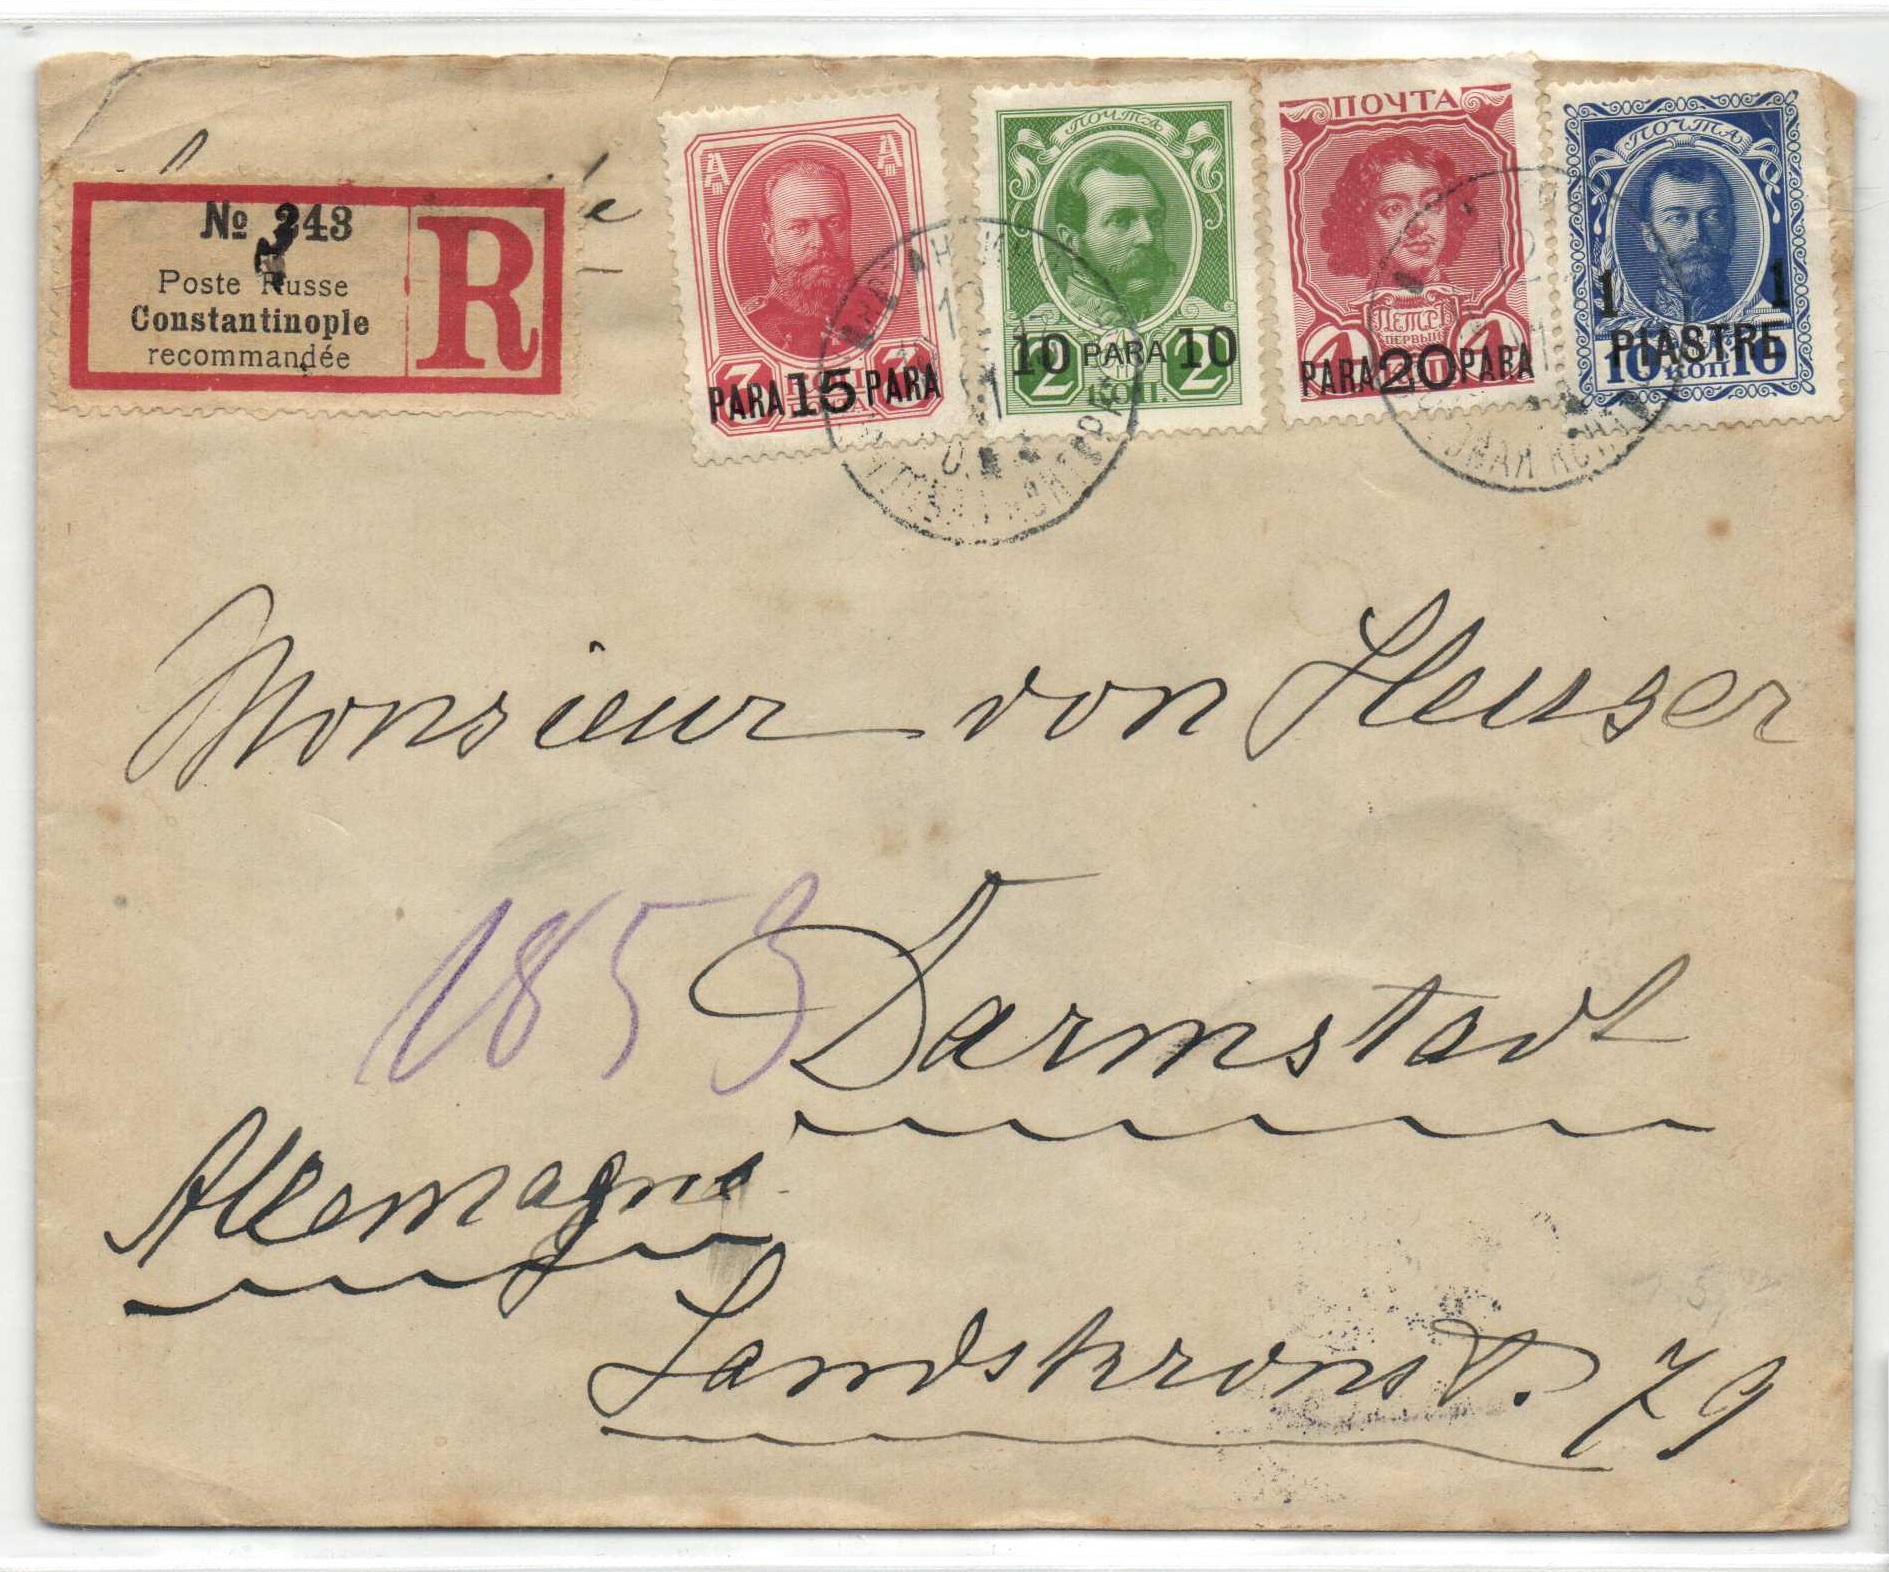 № 343
Poste Russe
Constantinople
recommandée
R
А А
3 3
PARA 15 PARA
ПОЧТА
10 PARA 10
2 КОП. 2
ПОЧТА
ПЕТРЪ
ПЕРВЫЙ
4 4
PARA 20 PARA
ПОЧТА
1 1
PIASTRE
10 КОП 10
Monsieur von Heuser
1853
Darmstadt
Allemagne
Landskronst. 79